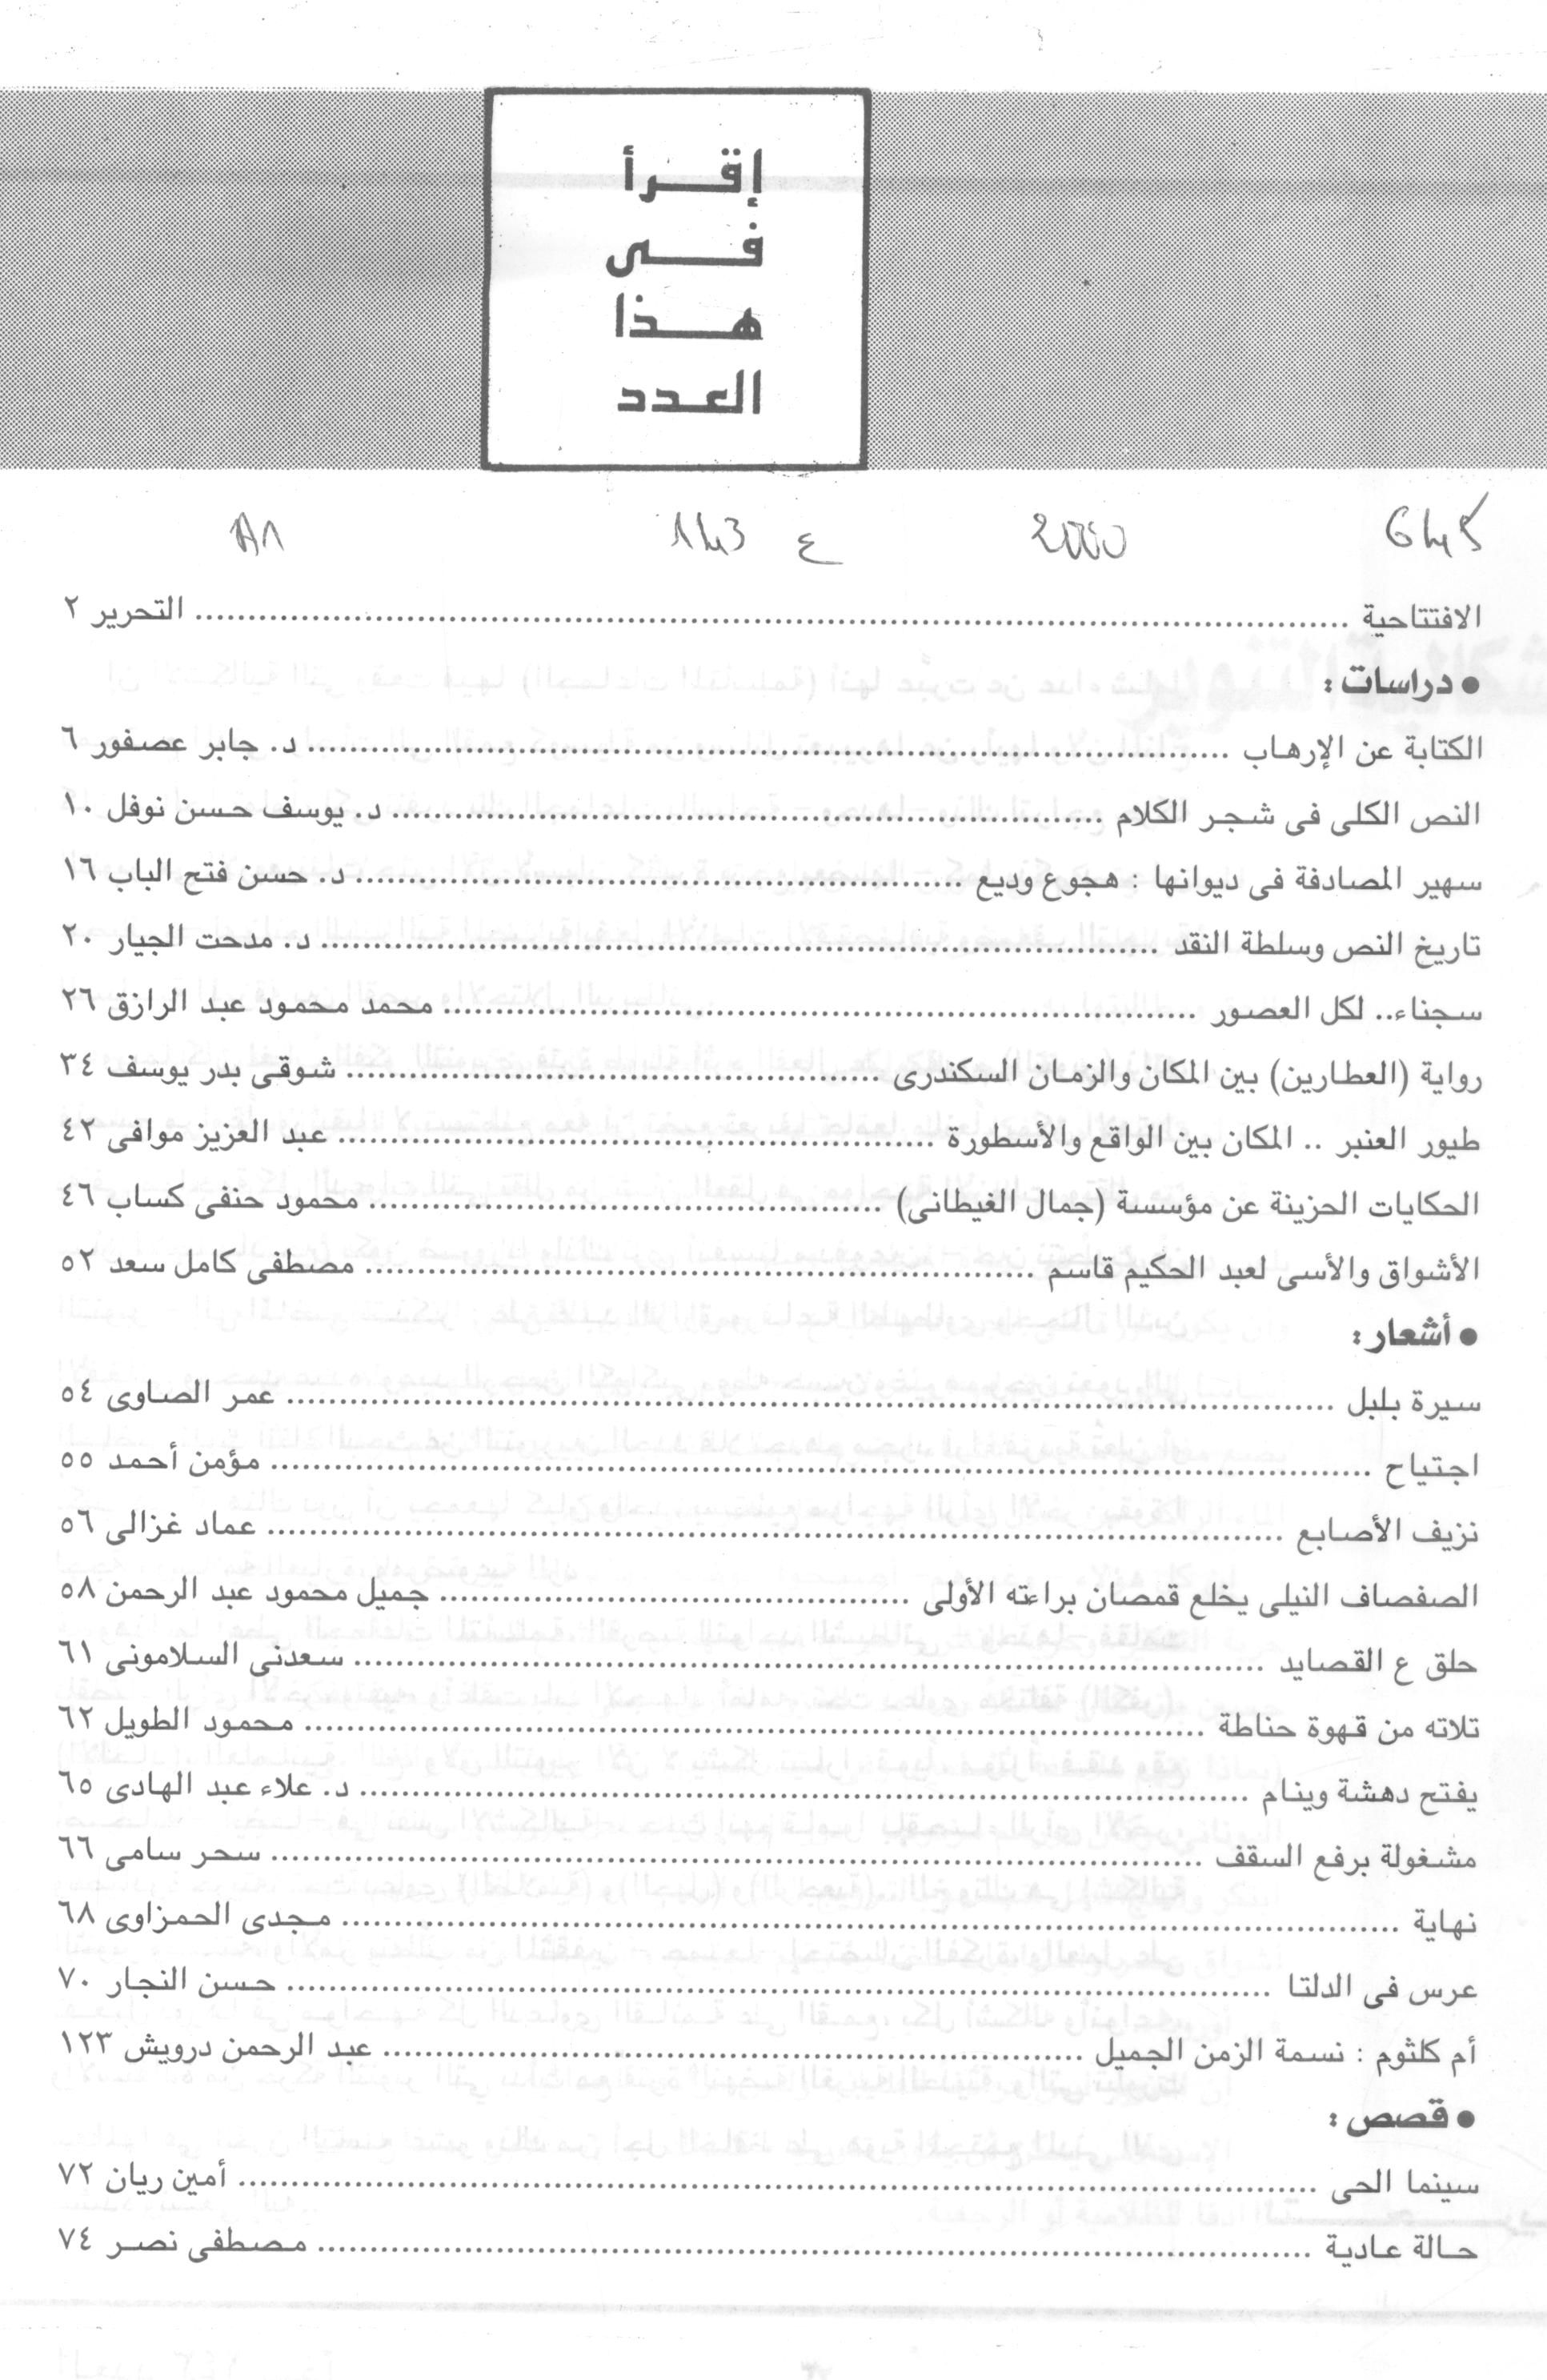 إقرأ
فى
هذا
العدد
2000 ع 143
الافتتاحية ........ التحرير ٢
● دراسات :
الكتابة عن الإرهاب ........ د. جابر عصفور ٦
النص الكلى فى شجر الكلام ........ د. يوسف حسن نوفل ١٠
سهير المصادفة فى ديوانها : هجوع وديع ........ د. حسن فتح الباب ١٦
تاريخ النص وسلطة النقد ........ د. مدحت الجيار ٢٠
سجناء.. لكل العصور ........ محمد محمود عبد الرازق ٢٦
رواية (العطارين) بين المكان والزمان السكندرى ........ شوقى بدر يوسف ٣٤
طيور العنبر .. المكان بين الواقع والأسطورة ........ عبد العزيز موافى ٤٢
الحكايات الحزينة عن مؤسسة (جمال الغيطانى) ........ محمود حنفى كساب ٤٦
الأشواق والأسى لعبد الحكيم قاسم ........ مصطفى كامل سعد ٥٢
● أشعار :
سيرة بلبل ........ عمر الصاوى ٥٤
اجتياح ........ مؤمن أحمد ٥٥
نزيف الأصابع ........ عماد غزالى ٥٦
الصفصاف النيلى يخلع قمصان براءته الأولى ........ جميل محمود عبد الرحمن ٥٨
حلق ع القصايد ........ سعدنى السلامونى ٦١
تلاته من قهوة حناطة ........ محمود الطويل ٦٢
يفتح دهشة وينام ........ د. علاء عبد الهادى ٦٥
مشغولة برفع السقف ........ سحر سامى ٦٦
نهاية ........ مجدى الحمزاوى ٦٨
عرس فى الدلتا ........ حسن النجار ٧٠
أم كلثوم : نسمة الزمن الجميل ........ عبد الرحمن درويش ١٢٣
● قصص :
سينما الحى ........ أمين ريان ٧٢
حالة عادية ........ مصطفى نصر ٧٤